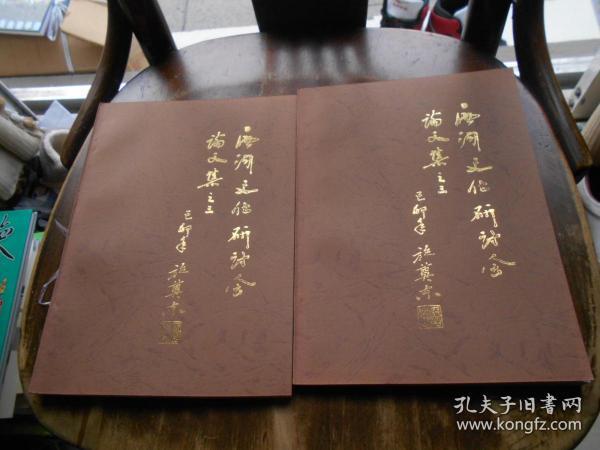 西湖文化研讨会
论文集之三
己卯年 施奠东
西湖文化研讨会
论文集之三
己卯年 施奠东
孔夫子旧书网
www.kongfz.com